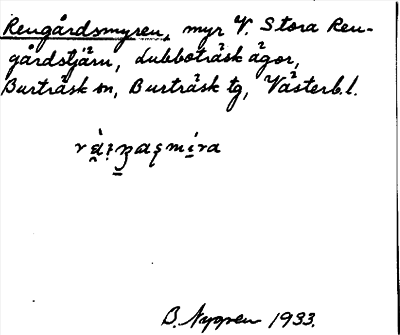 Rengårdsmyren, myr V. Stora Ren-
gårdstjärn, Lubboträsk ägor,
Burträsk sn, Burträsk tg, Västerb. l.
B. Nygren 1933.